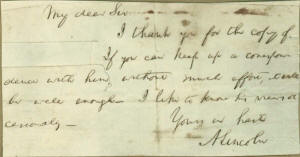 My dear Sir
I thank you for the copy of
If you can keep up a correspon
dence with him, without much effort, it will
be well enough – I like to know his views oc
casionally –
Yours in haste
A Lincoln